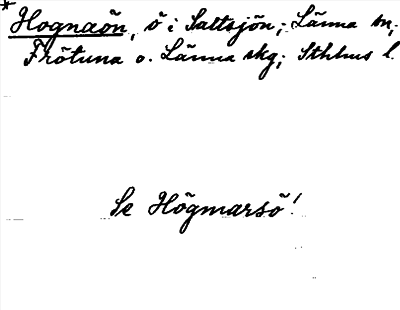 * Hognaön, ö i Saltsjön; Länna sn,
Frötuna o. Länna skg; Sthlms l.
Se Högmarsö!